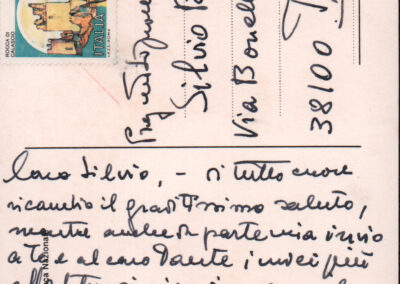 ROCCA DI
CALASCIO
ITALIA
I.P.Z.S. ROMA
Silvio
Via Bonelli
38100 T
Caro Silvio, - di tutto cuore
ricambio il graditissimo saluto,
mentre anche da parte mia invio
a te e al caro Dante i miei più
Nazionale